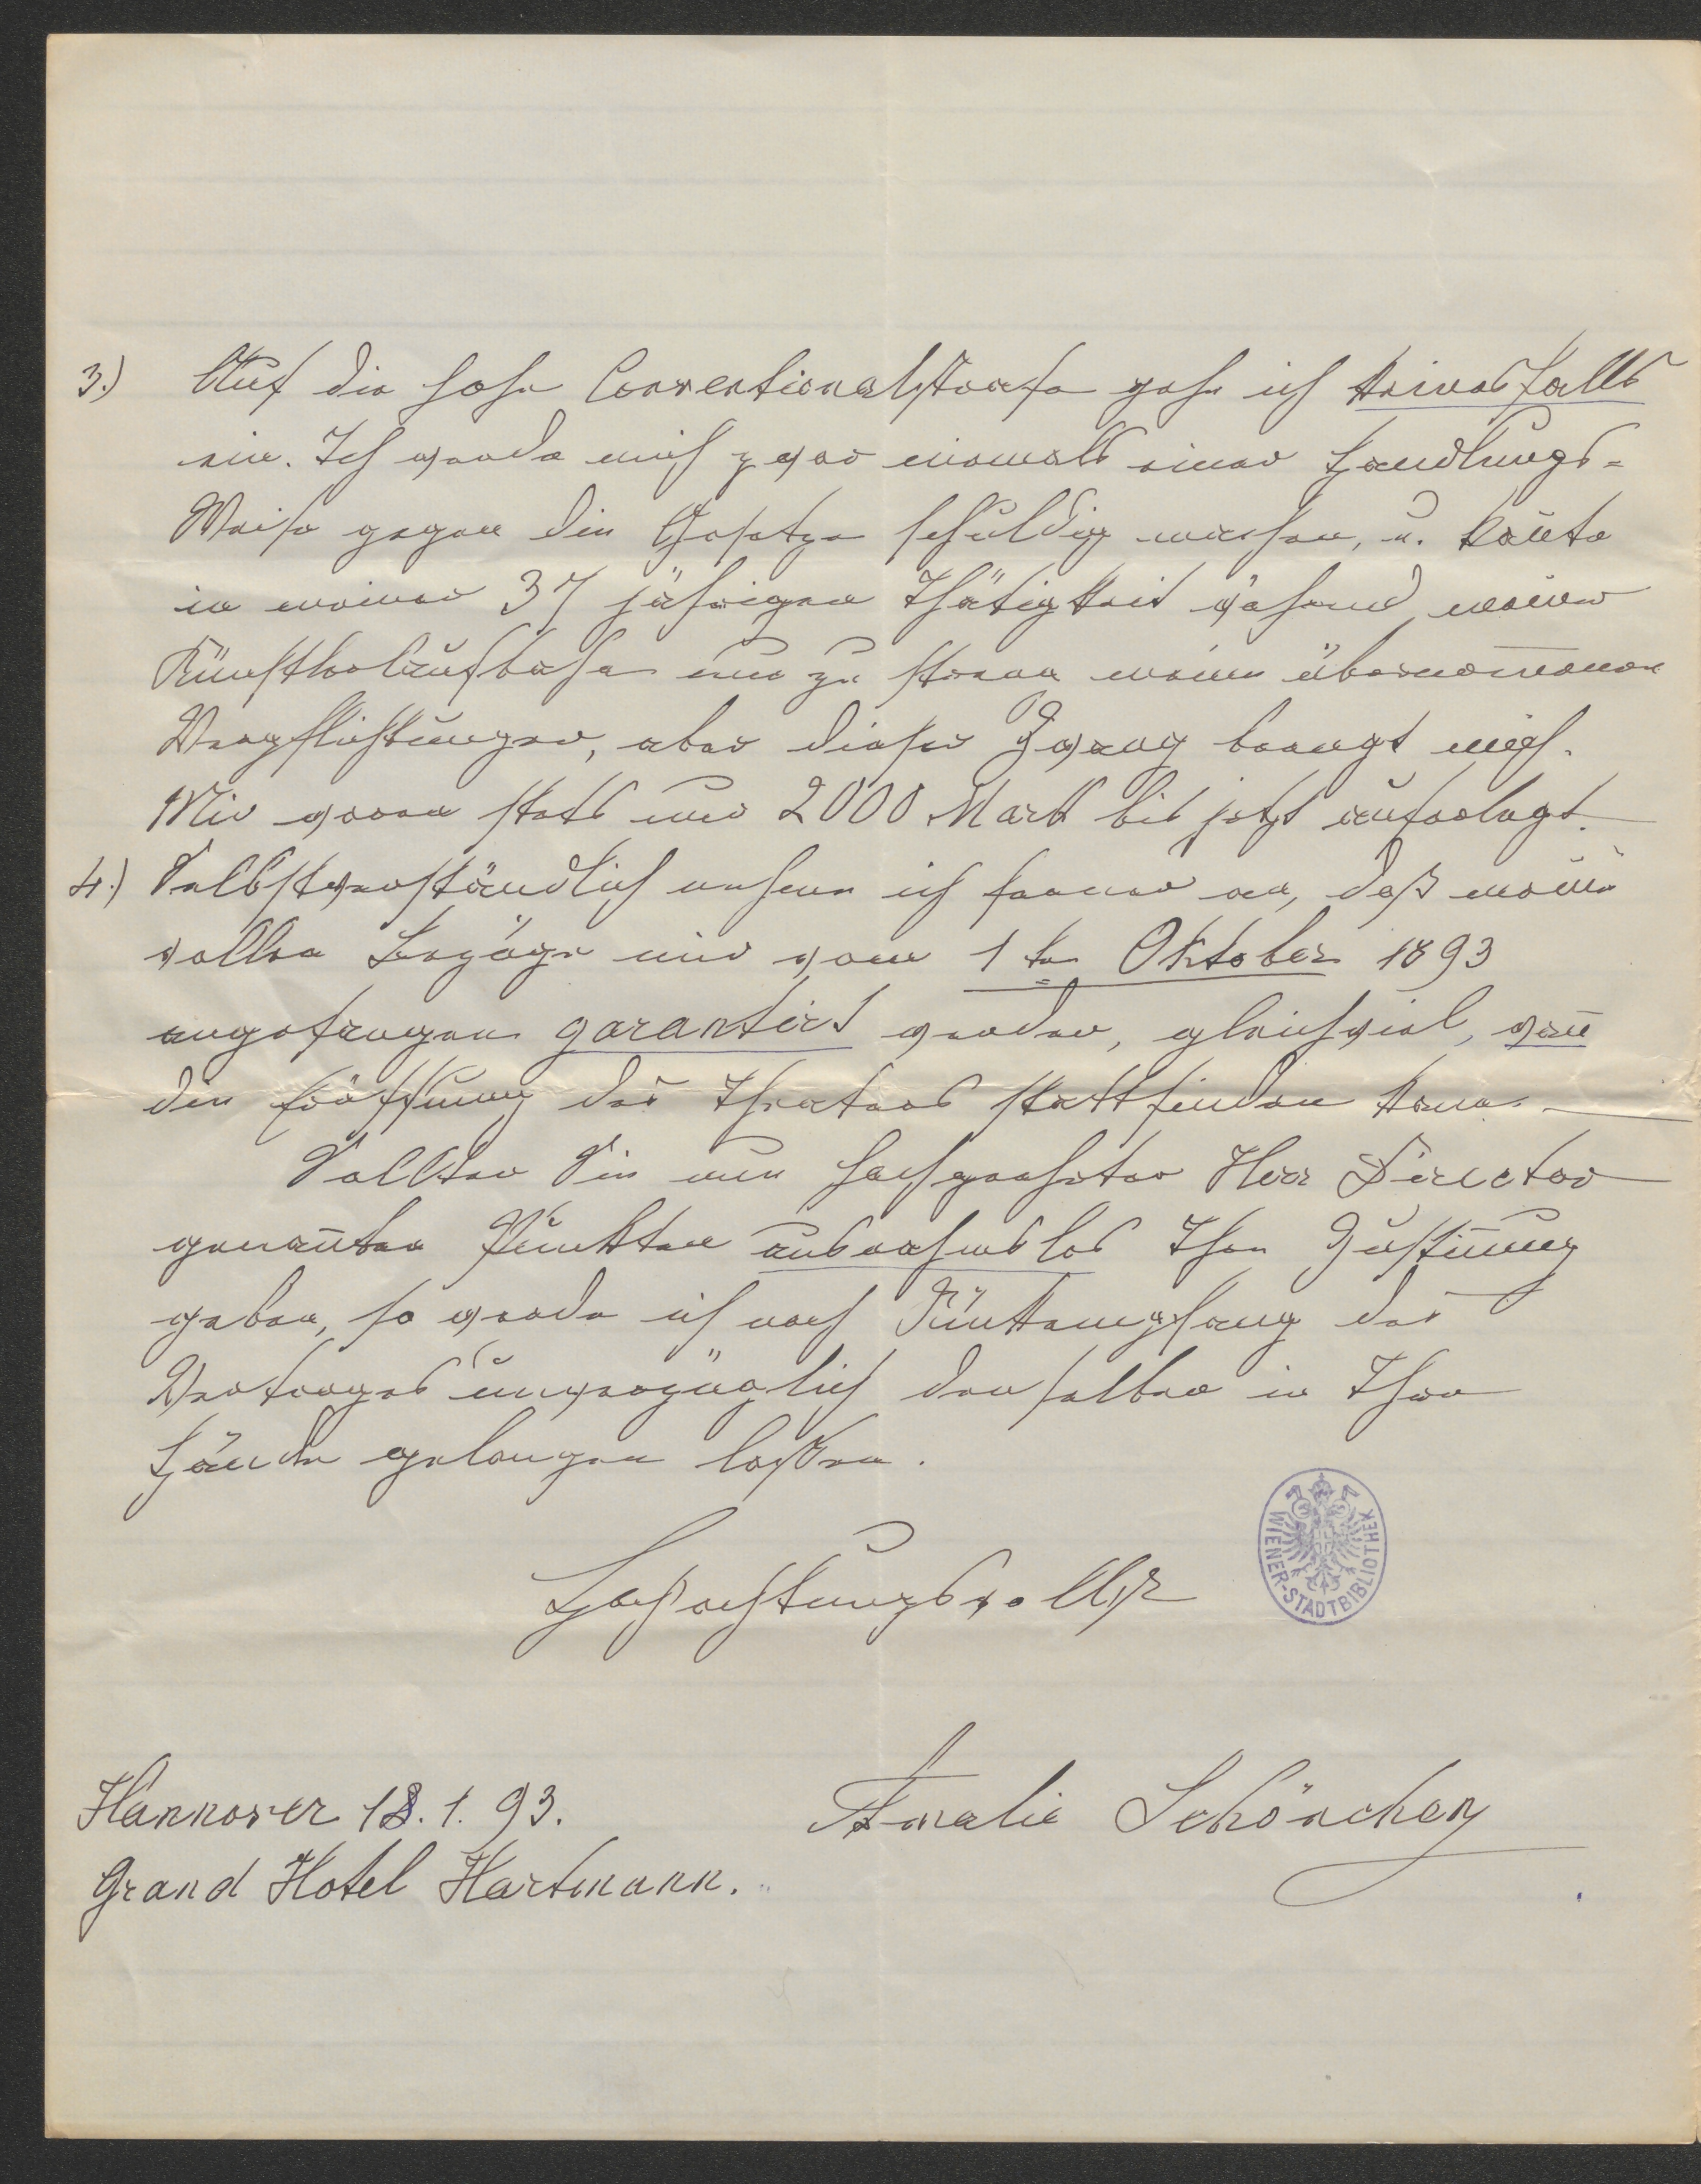 3.) Auf die hohe Conventionalstrafe gehe ich keinesfalls
ein. Ich werde mich zwar niemals einer Handlungs-
Weise gegen die Gesetze schuldig machen, u. kan̅te
in meiner 37 jährigen Thätigkeit während meiner
Künstlerlaufbahn nur zu streng meine übernom̅enen
Verpflichtungen, aber dieser Zwang beengt mich.
Mir waren stets nur 2000 Mark bis jetzt auferlegt.
4.) Selbstverständlich nehme ich ferner an, daß meine
vollen Bezüge mir vom 1ten Oktober 1893
angefangen garantirt werden, gleichviel, wan̅
die Eröffnung des Theaters stattfinden kann.
Sollten Sie nun hochgeehrter Herr Director
genan̅ten Punkten ausnahmslos Ihre Zustim̅ung
geben, so werde ich nach Rückempfang des
Vertrages unverzüglich denselben in Ihre
Hände gelangen lassen.
Hochachtungsvollst
WIENER-STADTBIBLIOTHEK
Hannover 18.1.93.
Amalie Schönchen
Grand Hotel Hartmann.